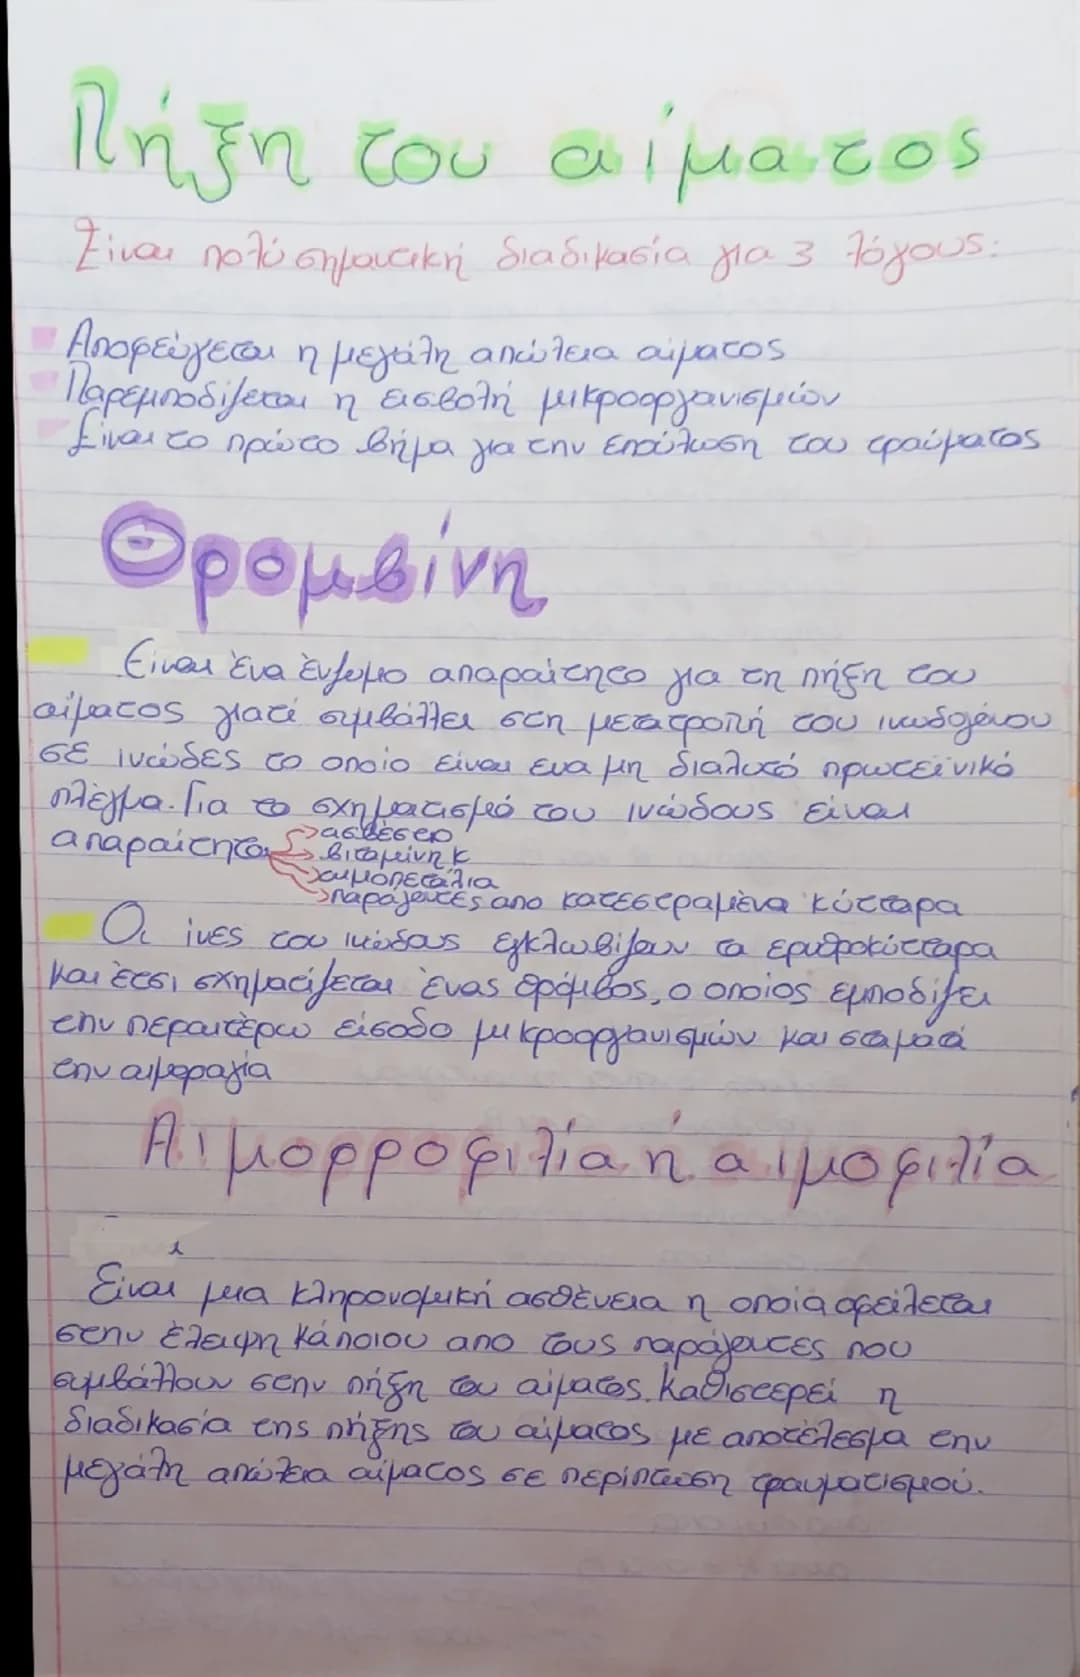 Πήξη του αίματος
Είναι πολύ σημαντική διαδικασία για 3 λόγους:
Αποφεύγεται η μεγάλη απώλεια αίματος
Παρεμποδίζεται η εισβολή μικροοργανισμών
Είναι το πρώτο βήμα για την επούλωση του τραύματος
Θρομβίνη
Είναι ένα ένζυμο απαραίτητο για τη πήξη του
αίματος γιατί συμβάλλει στη μετατροπή του ινωδογόνου
σε ινώδες το οποίο είναι ενα μη διαλυτό πρωτεϊνικό
πλέγμα. Για το σχηματισμό του ινώδους είναι
απαραίτητα
ασβέστιο
βιταμίνη Κ
αιμοπετάλια
παράγοντες απο κατεστραμένα κύτταρα
Οι ίνες του ινώδους εγκλωβίζουν τα ερυθροκύτταρα
και έτσι σχηματίζεται ένας θρόμβος, ο οποίος εμποδίζει
την περαιτέρω είσοδο μικροοργανισμών και σταματά
την αιμοραγία
Αιμορροφιλία ή αιμοφιλία
Είναι μια κληρονομική ασθένεια η οποία οφείλεται
στην έλειψη κάποιου απο τους παράγοντες που
συμβάλλουν στην πήξη του αίματος. Καθιστερεί η
διαδικασία της πήξης του αίματος με αποτέλεσμα την
μεγάλη απώλεια αίματος σε περίπτωση τραυματισμού.